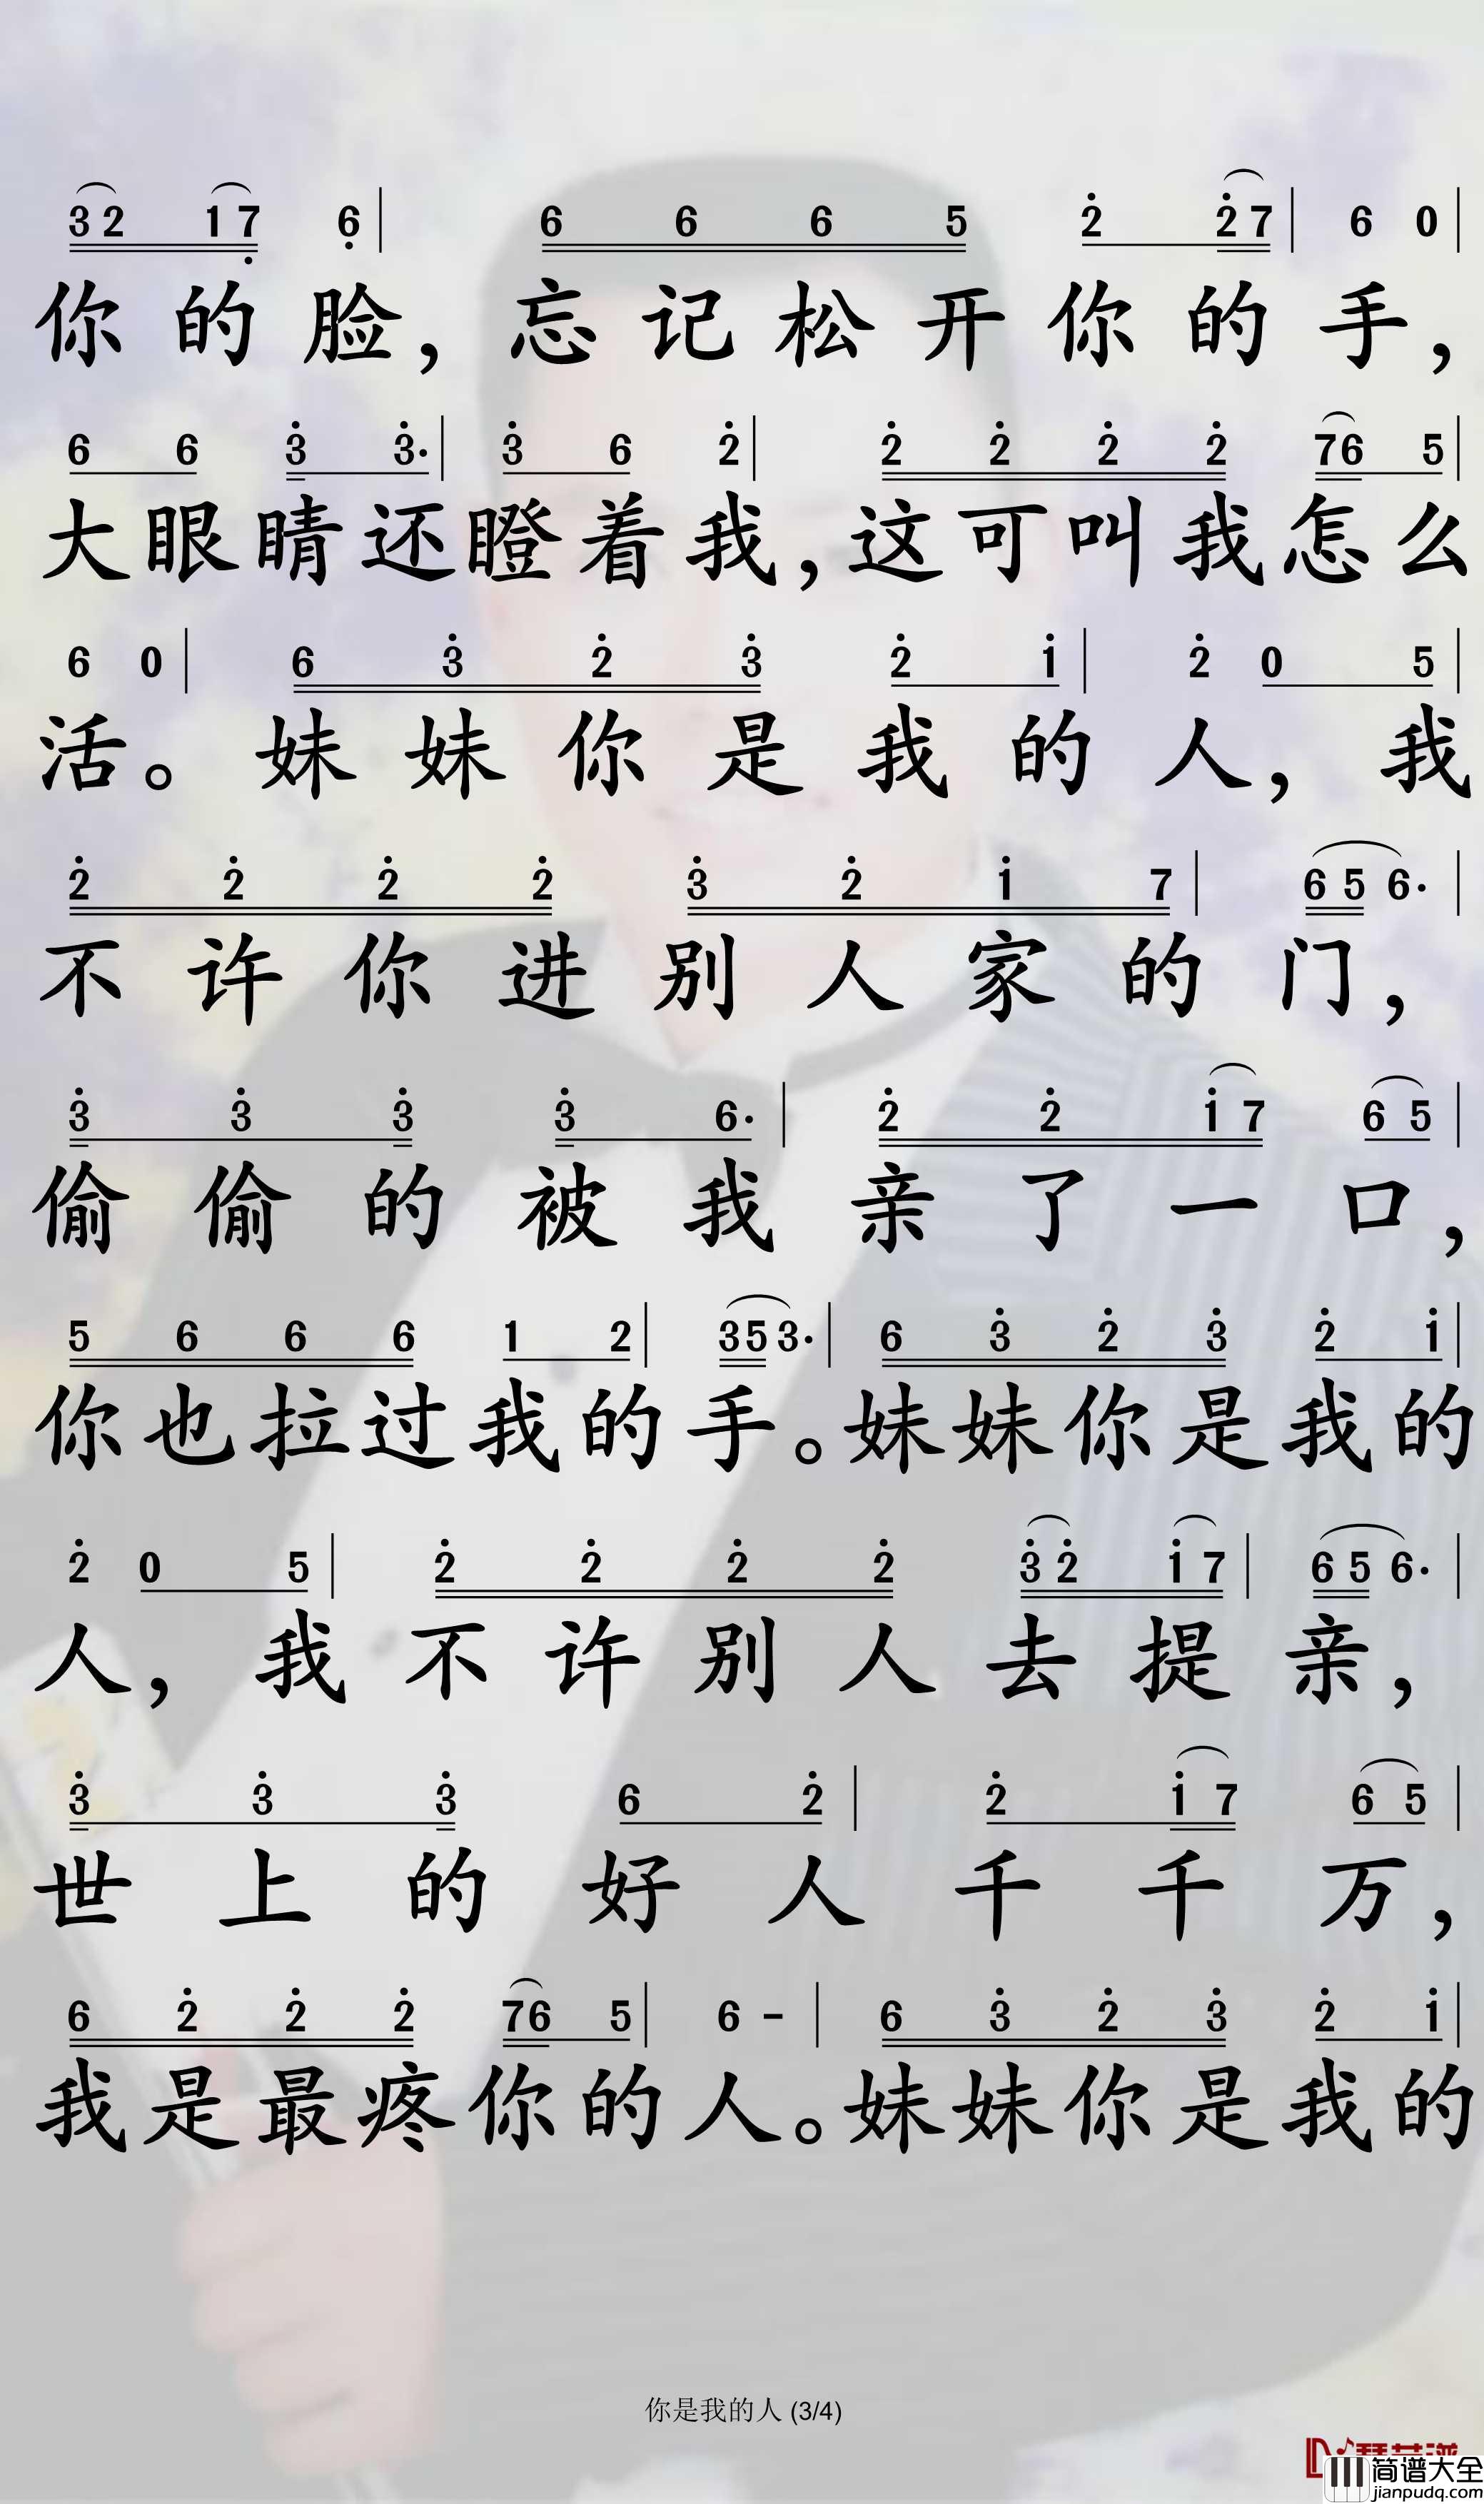 32 17 6 | 6 6 6 5 2 27 | 6 0 |
你的脸，忘记松开你的手，
6 6 3 3· | 3 6 2 | 2 2 2 2 76 5 |
大眼睛还瞪着我，这可叫我怎么
6 0 | 6 3 2 3 2 1 | 2 0 5 |
活。妹妹你是我的人，我
2 2 2 2 3 2 1 7 | 65 6· |
不许你进别人家的门，
3 3 3 3 6· | 2 2 17 65 |
偷偷的被我亲了一口，
5 6 6 6 1 2 | 35 3· | 6 3 2 3 2 1 |
你也拉过我的手。妹妹你是我的
2 0 5 | 2 2 2 2 32 17 | 65 6· |
人，我不许别人去提亲，
3 3 3 6 2 | 2 17 65 |
世上的好人千千万，
6 2 2 2 76 5 | 6 - | 6 3 2 3 2 1 |
我是最疼你的人。妹妹你是我的
你是我的人 (3/4)
简谱大全
jianpudq.com